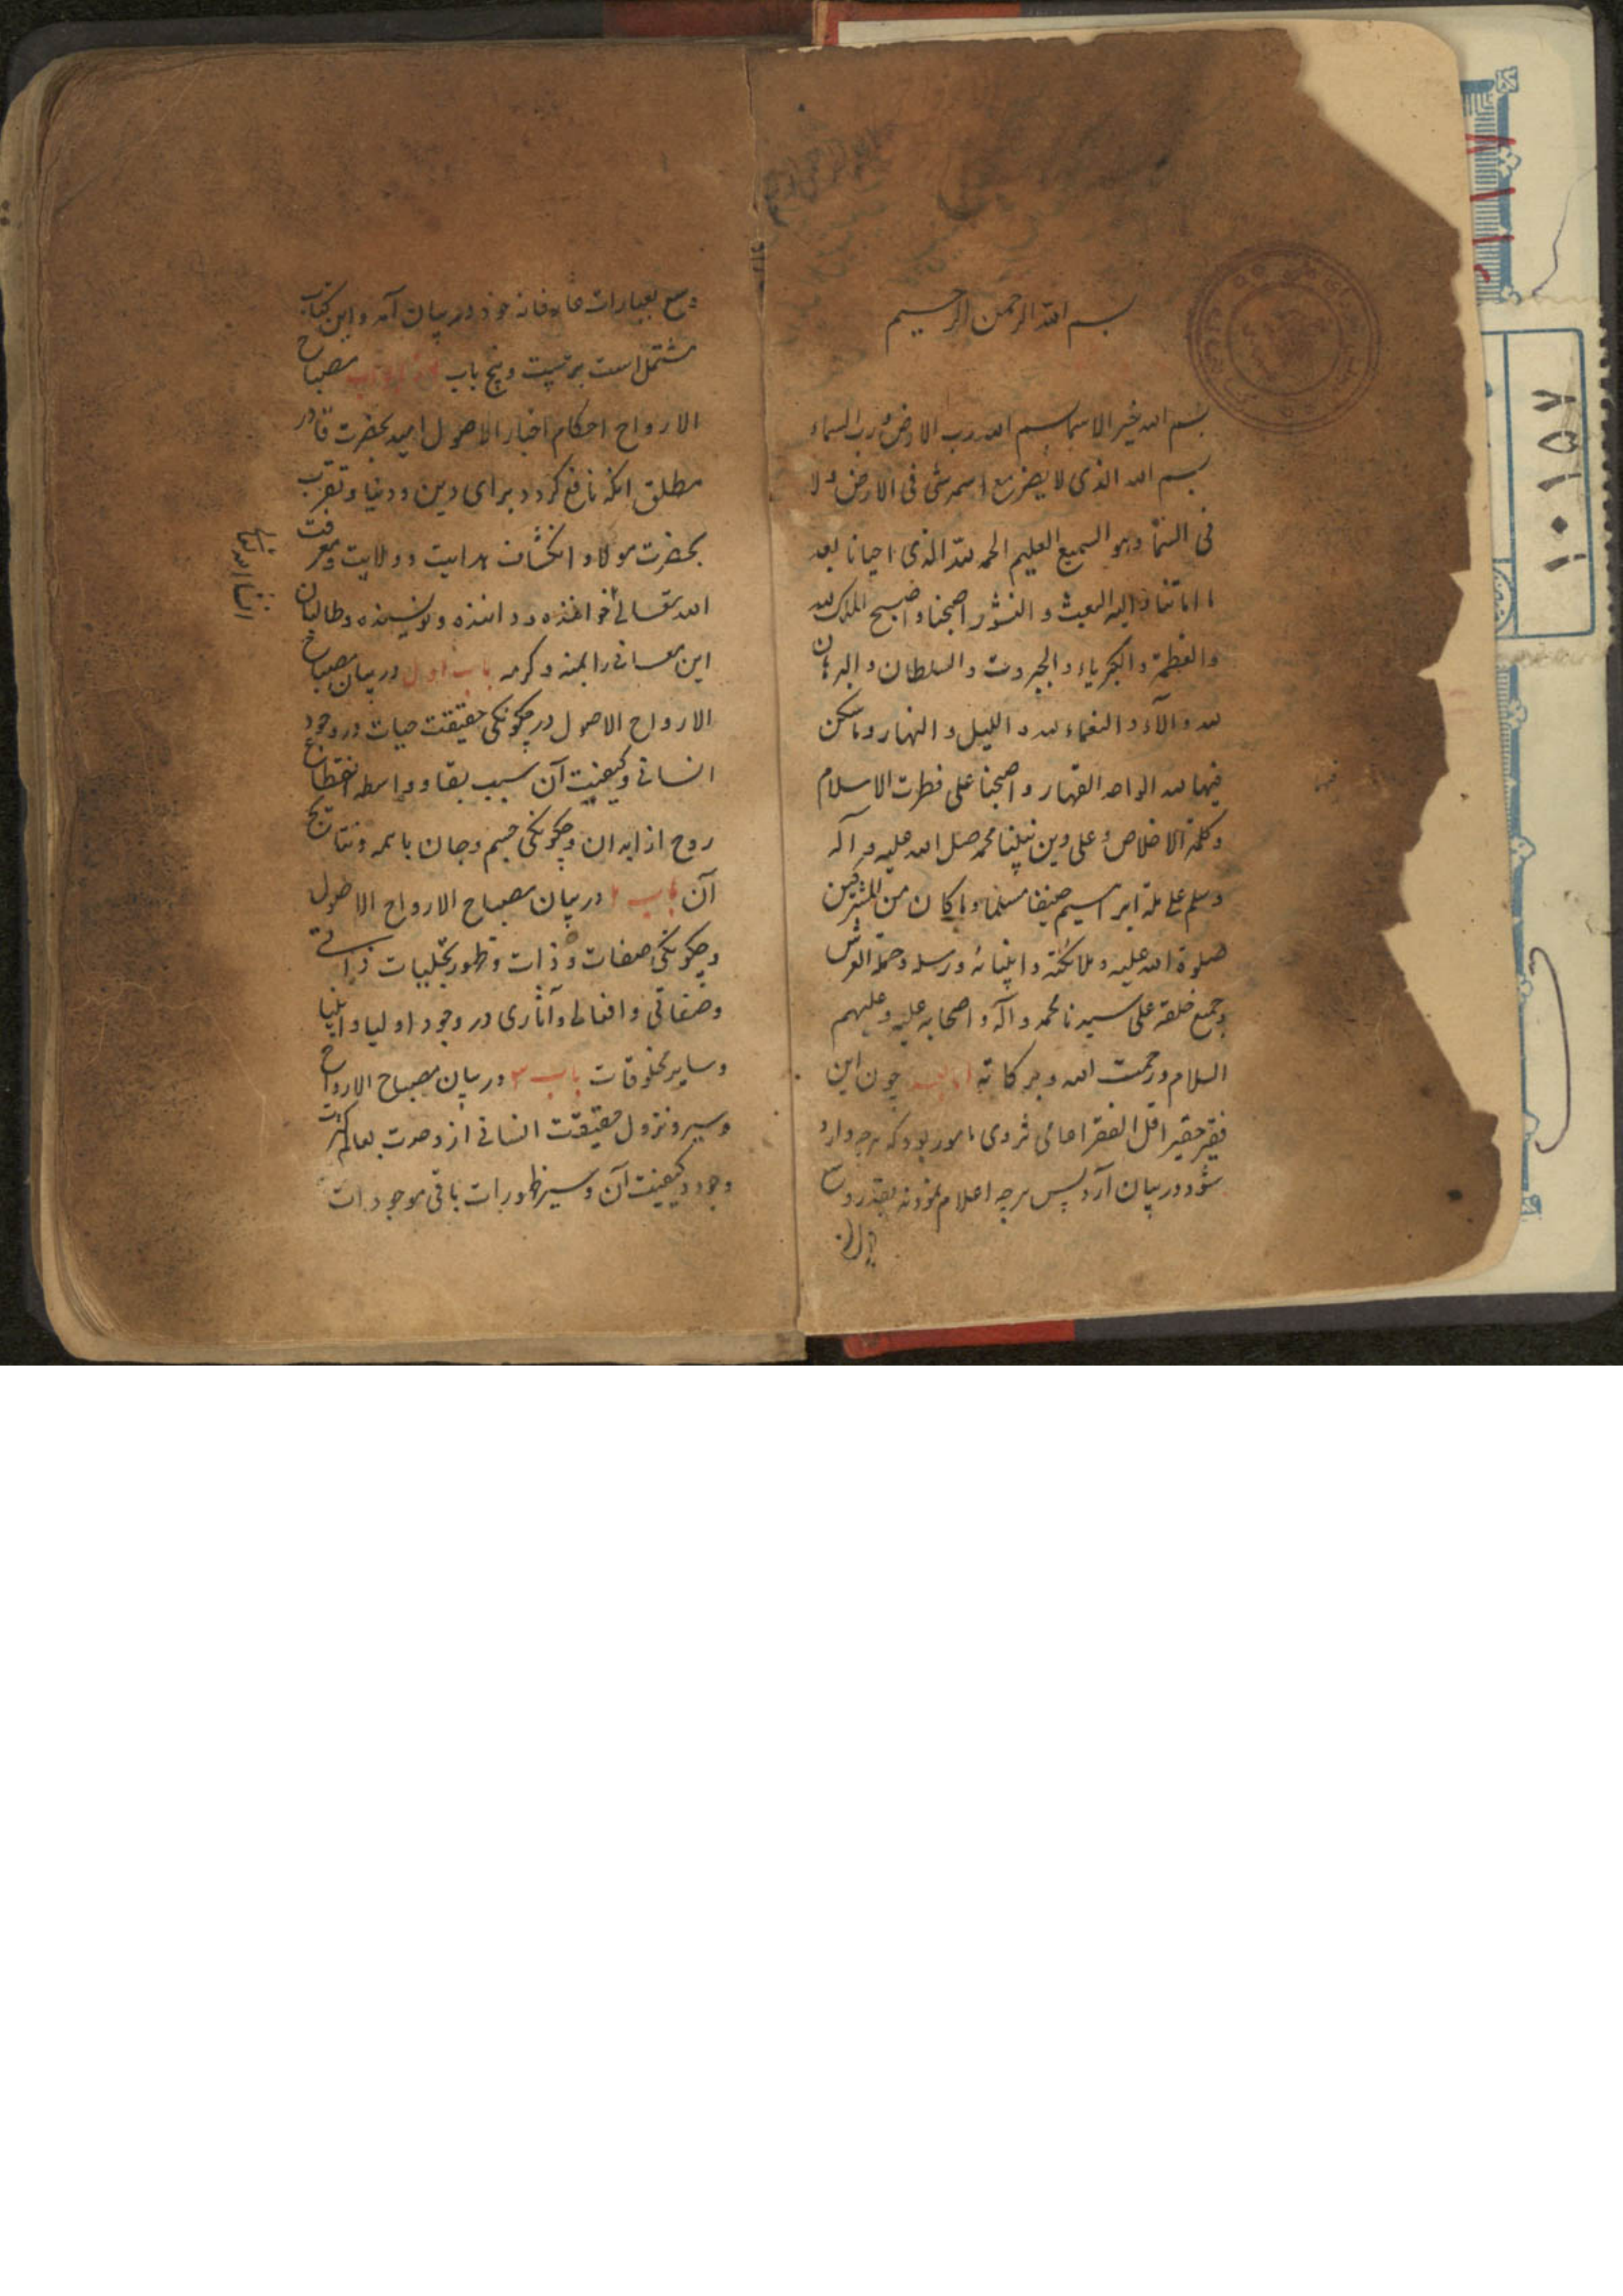 بسم الله الرحمن الرحیم
بسم الله خیر الاسما بسم الله رب الارض و رب السماء
بسم الله الذی لا یضر مع اسمه شی فی الارض و لا
فی السماء و هو السمیع العلیم الحمد لله الذی احیانا بعد
ما اماتنا و الیه البعث و النشور اصبحنا و اصبح الملک لله
و العظمة و الکبریاء و الجبروت و السلطان و البرهان
لله و الآلاء و النعماء لله و اللیل و النهار و ما سکن
فیهما لله الواحد القهار و اصبحنا علی فطرت الاسلام
و کلمة الاخلاص و علی دین نبینا محمد صلی الله علیه و آله
و سلم علی ملة ابراهیم حنیفا مسلما و ما کان من المشرکین
صلوة الله علیه و ملائکته و انبیائه و رسله و حملة العرش
و جمیع خلقه علی سیدنا محمد و آله و اصحابه علیه و علیهم
السلام و رحمت الله و برکاته اما بعد چون این
فقیر حقیر اقل الفقرا مامور بود که هرچه وارد
شود در بیان آرد پس هرچه اعلام نمودند بقدر وسع
وسع بعبارات عارفانه خود در بیان آمد و این کتاب
مشتمل است بر بیست و پنج باب مصباح
الارواح احکام اخبار الاصول امید بحضرت قادر
مطلق انکه نافع کردد برای دین و دنیا و تقرب
بحضرت مولا و انکشاف هدایت و ولایت و معرفت
الله تعالی خواننده و داننده و نویسنده و طالبان
این معانی را بمنه و کرمه باب اول در بیان مصباح
الارواح الاصول در چکونکی حقیقت حیات در وجود
انسانی و کیفیت آن سبب بقا و واسطه انقطاع
روح از ابدان و چکونکی جسم و جان با همه و نتایج
آن باب ۲ در بیان مصباح الارواح الاصول
و چکونکی صفات و ذات و ظهور تجلیات ذاتی
و صفاتی و افعالی و آثاری در وجود اولیا و انبیا
و سایر مخلوقات باب ۳ در بیان مصباح الارواح
و سیر و نزول حقیقت انسانی از وحدت بعالم کثرت
وجود و کیفیت آن و سیر ظهورات باقی موجودات
انشا الله تعالی
فیها
۱۰۱۵۷